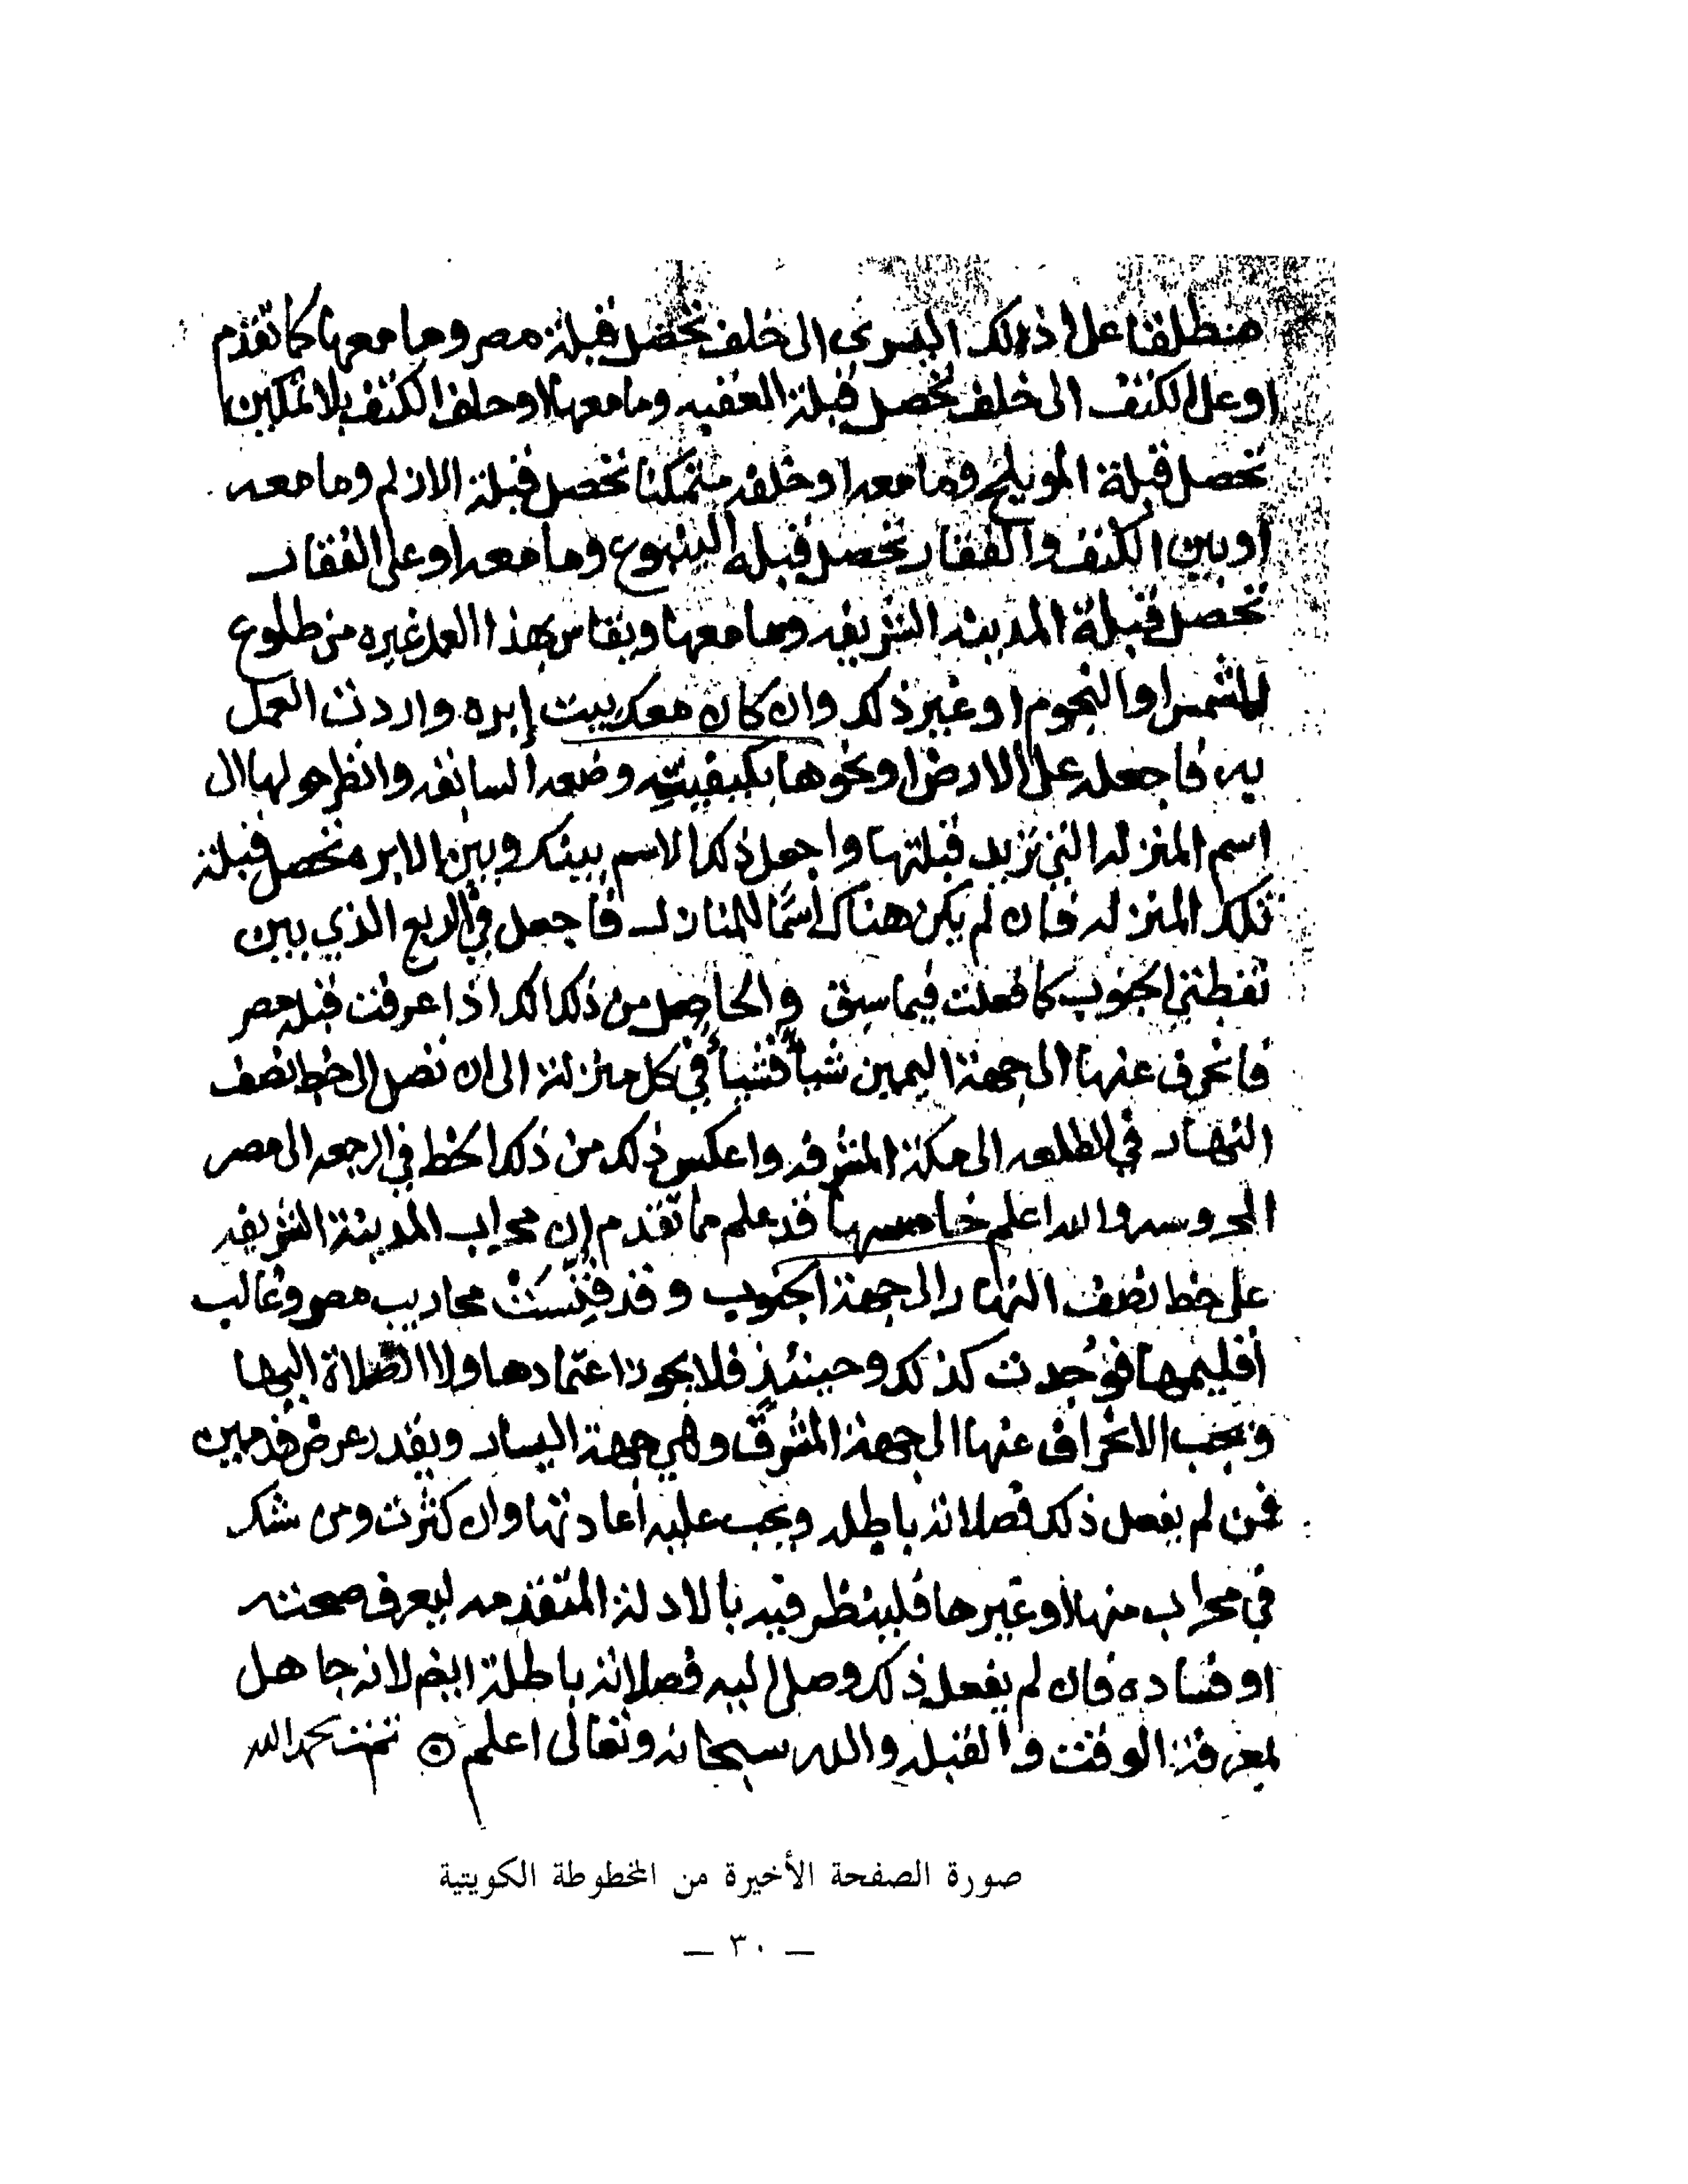 منطلقا على اذنك اليسرى الى خلف تحصل قبلة مصر وما معها كما تقدم
او على الكتف الى خلف تحصل قبلة العقبه وما معها او خلف الكتف بلا تمكين
تحصل قبلة المويلح وما معه او خلفه متمكنا تحصل قبلة الازلم وما معه
او بين الكتف والفقار تحصل قبله الينبوع وما معه او على الفقار
تحصل قبلة المدينه الشريفه وما معها ويقاس بهذا العمل غيره من طلوع
الشمس او النجوم او غير ذلك وان كان معك بيت إبره واردت العمل
به فاجعله على الارض او نحوها بكيفيته وضعه السابقه وانظر حولها الى
اسم المنزله التي تريد قبلتها واجعل ذلك الاسم بينك وبين الابره تحصل قبلة
تلك المنزله فان لم يكن هناك اسما للمنازل فاجعل في الربع الذي بين
نقطتي الجنوب كما فعلت فيما سبق والحاصل من ذلك انك اذا عرفت قبله مصر
فانحرف عنها الى جهة اليمين شيأ فشيأ في كل منزلة الى ان تصل الى خط نصف
النهار في الطلعه الى مكة المشرفه واعكس ذلك من ذلك الخط في الرجعه الى مصر
المحروسه والله اعلم خامسها قد علم مما تقدم إن محراب المدينة الشريفه
على خط نصف النهار الى جهة الجنوب وقد فتشت محاريب مصر وغالب
أقليمها فوجدت كذلك وحينئذ فلا يجوز اعتمادها ولا الصلاة اليها
ويجب الانحراف عنها الى جهة المشرق وهي جهة اليسار وبقدر عرض قدمين
فمن لم يفعل ذلك فصلاته باطله ويجب عليه أعادتها وان كثرت ومن شك
في محراب منها او غيرها فلينظر فيه بالادلة المتقدمه ليعرف صحته
او فساده فان لم يفعل ذلك وصلى اليه فصلاته باطلة ايضم لانه جاهل
لمعرفة الوقت والقبله والله سبحانه وتعالى اعلم تمت بحمد الله
صورة الصفحة الأخيرة من المخطوطة الكويتية
— ٣٠ —